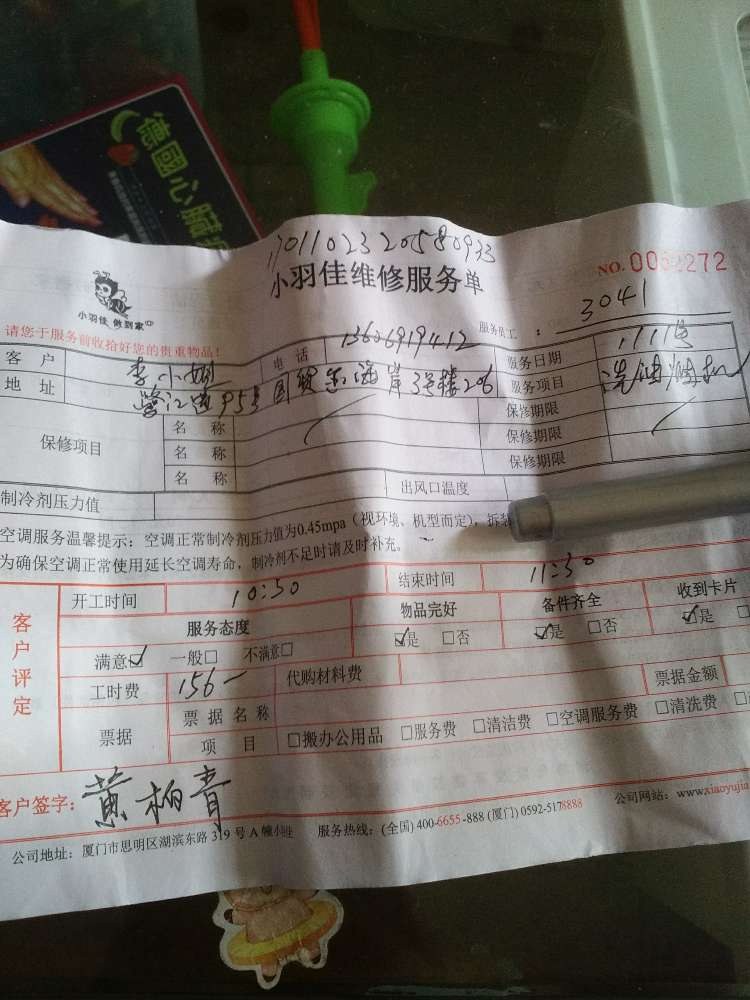 德國心臟
17011023 20580933
小羽佳维修服务单
NO. 00 2272
小羽佳 做到家
服务员工 : 3041
请您于服务前收拾好您的贵重物品!
客 户 李小姐 电 话 13606919412 服务日期 1月11号
地 址 鹭江道95号国贸 海岸3号楼206 服务项目 洗油烟机
保修项目 名 称 保修期限
名 称 保修期限
名 称 保修期限
制冷剂压力值 出风口温度
空调服务温馨提示:空调正常制冷剂压力值为0.45mpa(视环境、机型而定),拆装
为确保空调正常使用延长空调寿命,制冷剂不足时请及时补充。
客户评定
开工时间 10:50 结束时间 11:50
服务态度 物品完好 备件齐全 收到卡片
满意☑ 一般□ 不满意□ ☑是 □否 ☑是 □否 ☑是 □
工时费 156- 代购材料费 票据金额
票据 票据名称
项 目 □搬办公用品 □服务费 □清洁费 □空调服务费 □清洗费 □
客户签字: 黄柏青
公司地址:厦门市思明区湖滨东路319号A幢 服务热线:(全国)400-6655-888 (厦门) 0592-5178888 公司网站:www.xiaoyujia